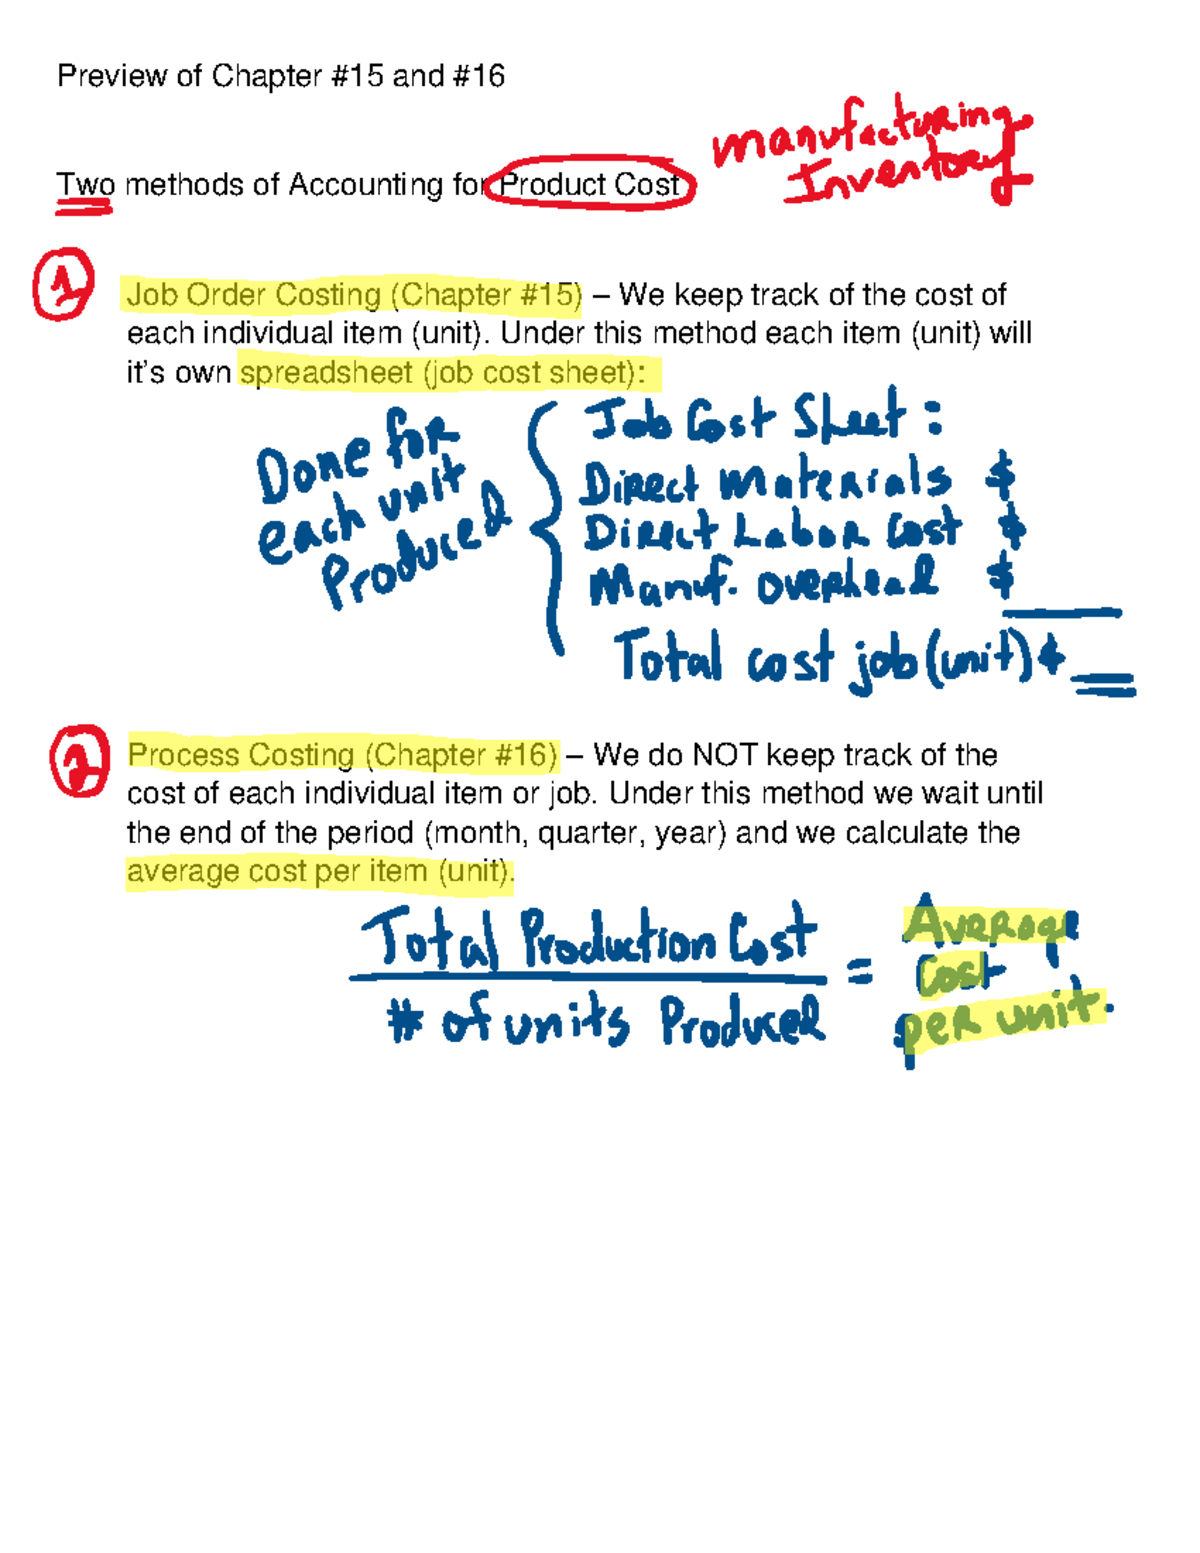 Preview of Chapter #15 and #16
manufacturing
Inventory
Two methods of Accounting for Product Cost
1
Job Order Costing (Chapter #15) – We keep track of the cost of
each individual item (unit). Under this method each item (unit) will
it's own spreadsheet (job cost sheet):
Done for
each unit
Produced
Job Cost Sheet:
Direct Materials $
Direct Labor Cost $
Manuf. overhead $
Total cost job (unit) $
2
Process Costing (Chapter #16) – We do NOT keep track of the
cost of each individual item or job. Under this method we wait until
the end of the period (month, quarter, year) and we calculate the
average cost per item (unit).
Total Production Cost
# of units Produced
=
Average
Cost
per unit.